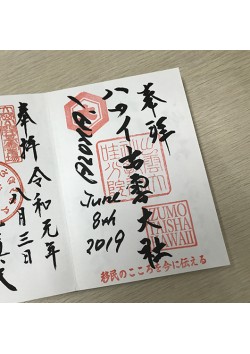 奉拝
ハワイ出雲大社
ALOHA!
June
8th
2019
IZUMO
TAISHA
HAWAII
移民のこころを今に伝える
奉拝
令和元年
八月三日